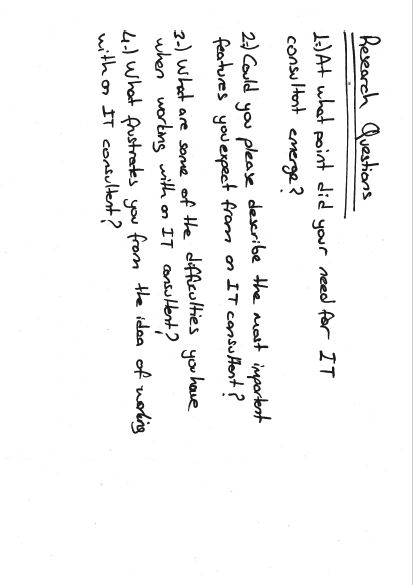 Research Questions
1-) At what point did your need for IT
consultant emerge?
2-) Could you please describe the most important
features you expect from an IT consultant?
3-) What are some of the difficulties you have
when working with an IT consultent?
4-) What frustrates you from the idea of working
with an IT consultent?